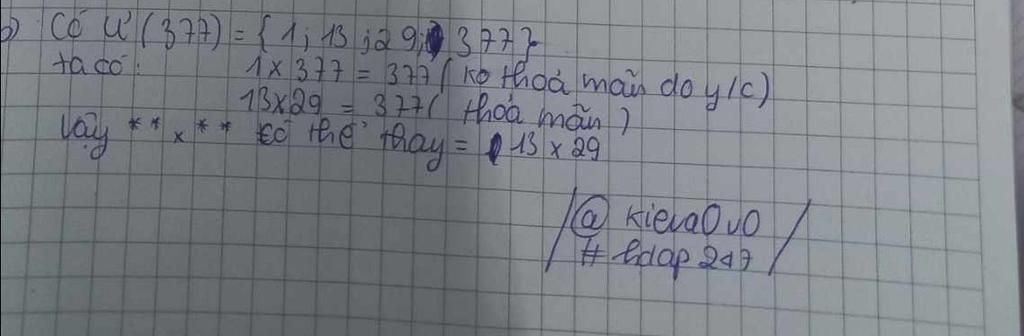 b) Có Ư(377) = {1; 13; 29; 377}
ta có: 1 x 377 = 377 ( ko thoả mãn do y/c)
13 x 29 = 377( thoả mãn )
Vậy ** x ** có thể thay = 13 x 29
@ kieva0v0
# hdap 247